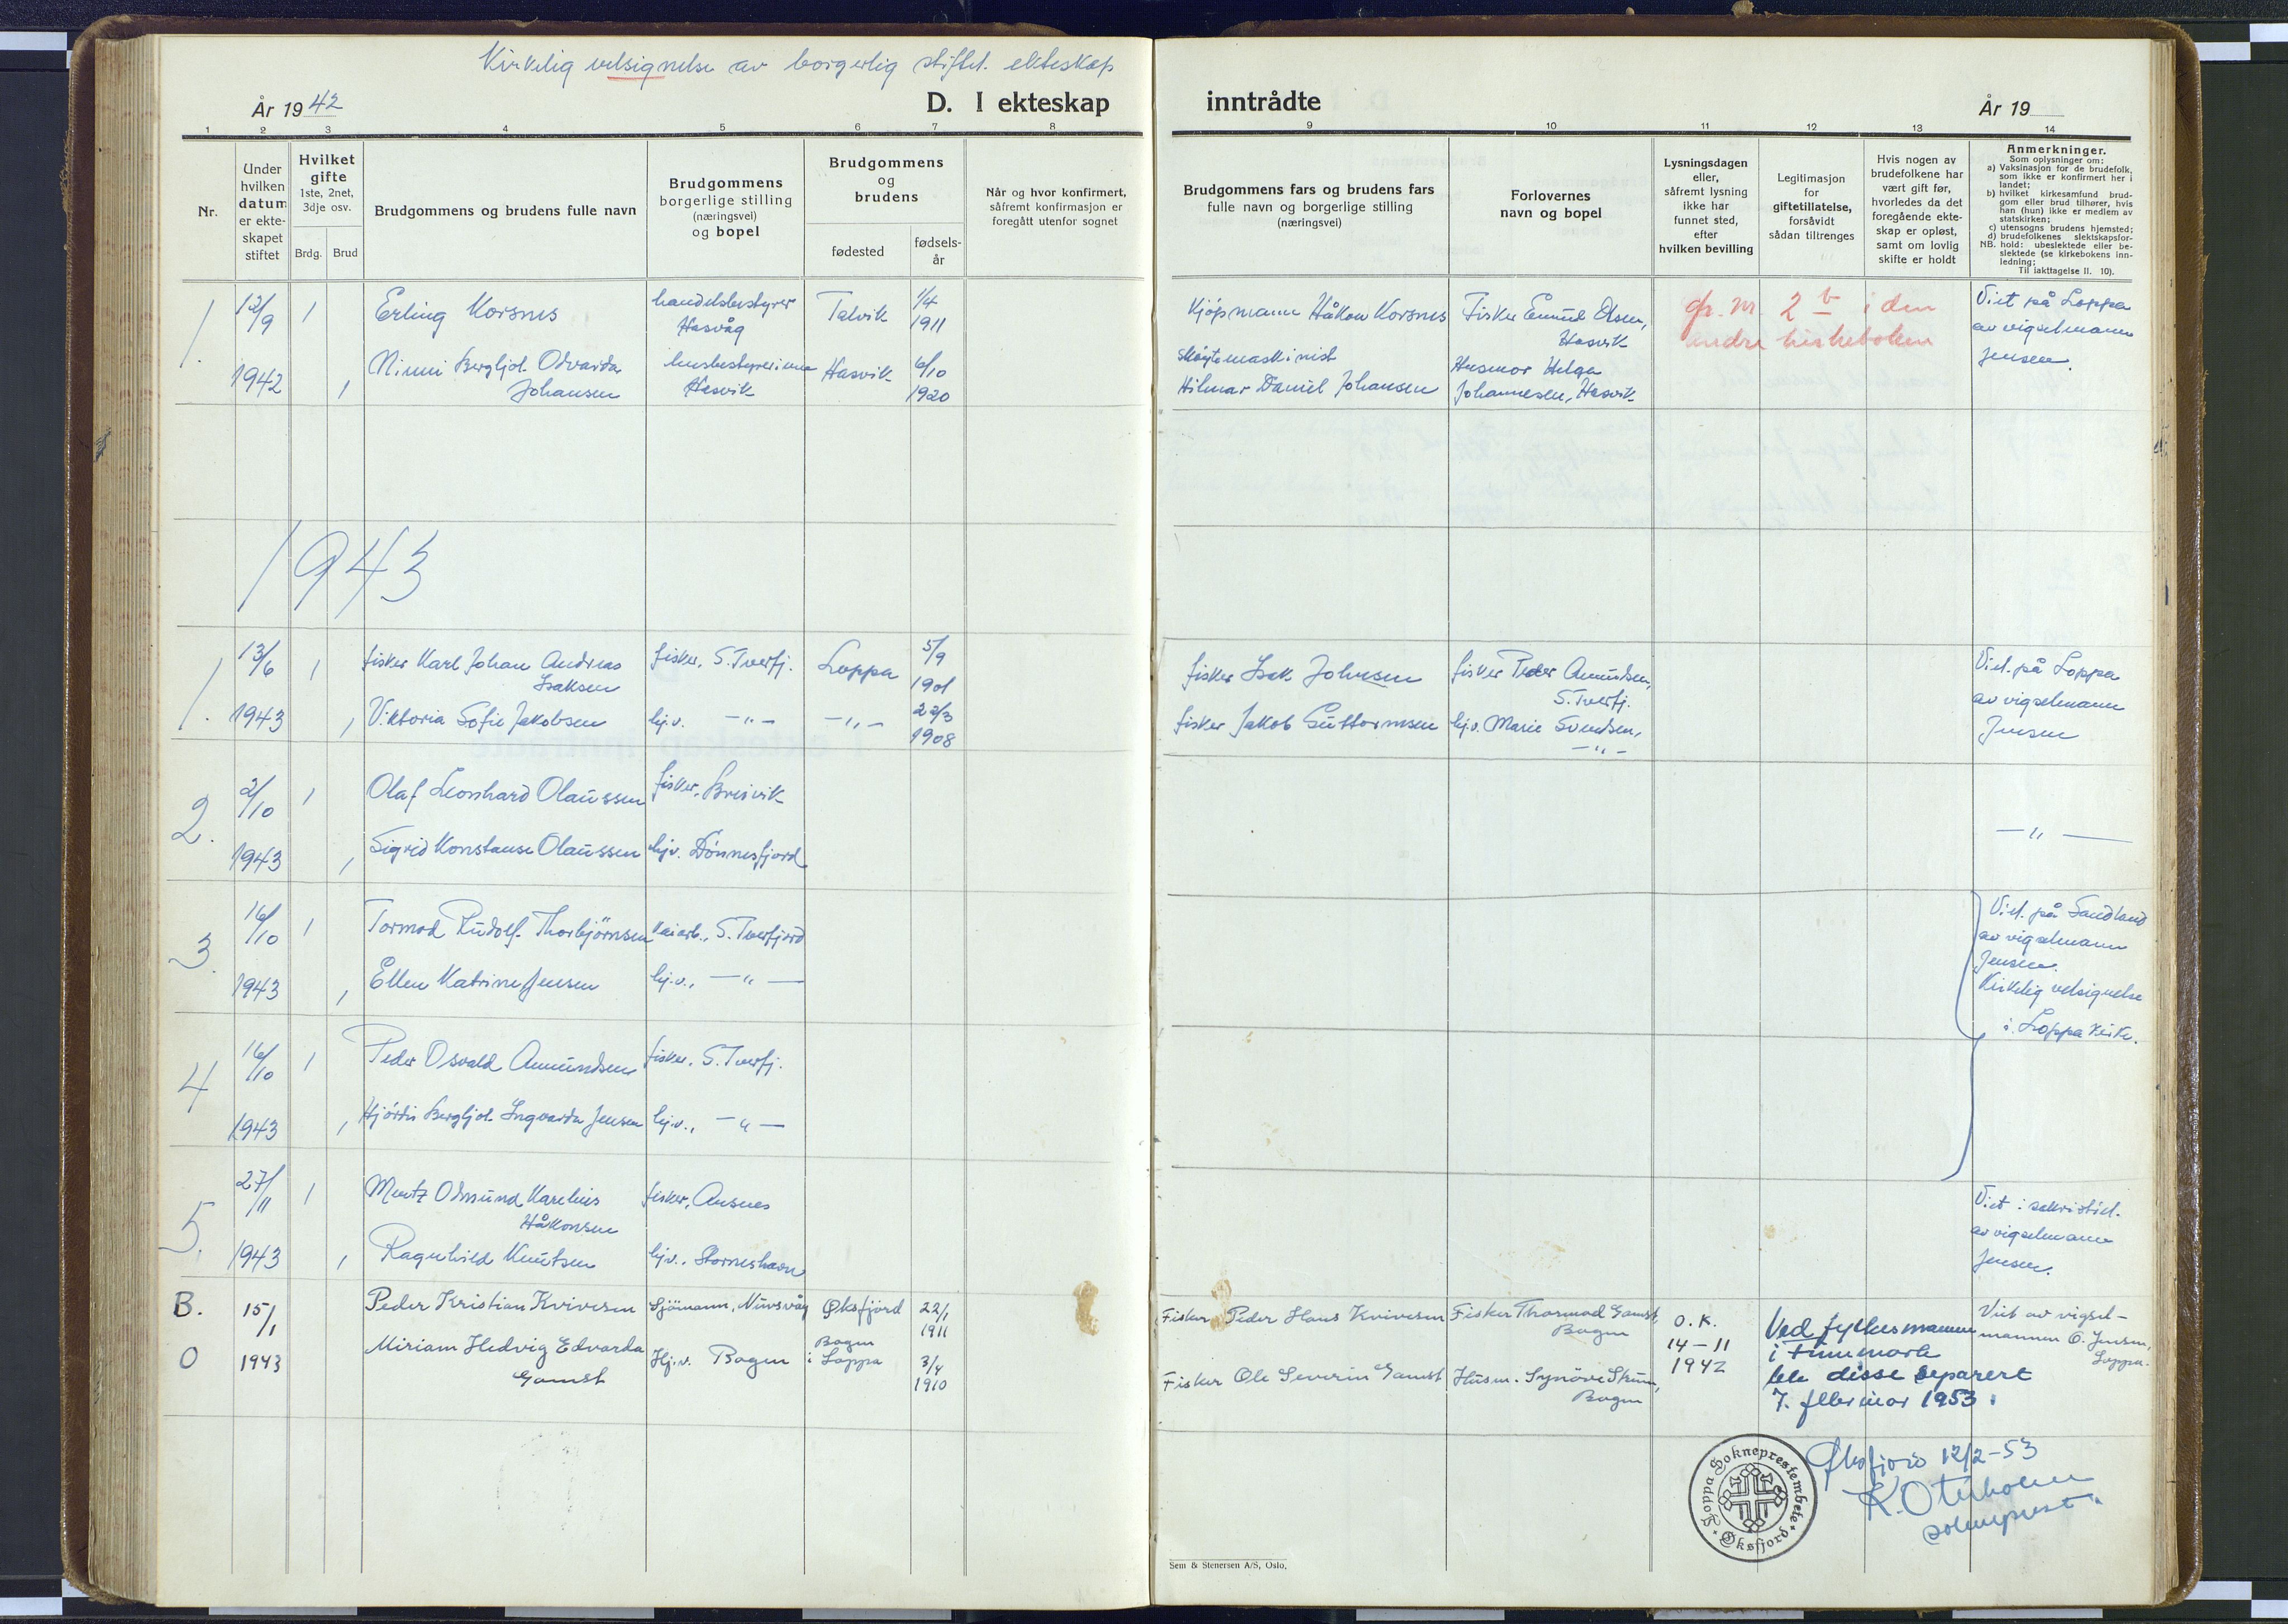 Kirkelig velsignelse av borgerlig stiftet ekteskap
År 1942
D. I ekteskap inntrådte
År 19
1 2 3 4 5 6 7 8 9 10 11 12 13 14
Nr.
Under hvilken datum er ekteskapet stiftet
Hvilket gifte
1ste, 2net, 3dje osv.
Brdg. Brud
Brudgommens og brudens fulle navn
Brudgommens borgerlige stilling (næringsvei) og bopel
Brudgommens og brudens
fødested
fødselsår
Når og hvor konfirmert, såfremt konfirmasjon er foregått utenfor sognet
Brudgommens fars og brudens fars fulle navn og borgerlige stilling (næringsvei)
Forlovernes navn og bopel
Lysningsdagen eller, såfremt lysning ikke har funnet sted, efter hvilken bevilling
Legitimasjon for giftetillatelse, forsåvidt sådan tiltrenges
Hvis nogen av brudefolkene har vært gift før, hvorledes da det foregående ekteskap er opløst, samt om lovlig skifte er holdt
Anmerkninger.
Som oplysninger om:
a) Vaksinasjon for de brudefolk, som ikke er konfirmert her i landet;
b) hvilket kirkesamfund brudgom eller brud tilhører, hvis han (hun) ikke er medlem av statskirken;
c) utensogns brudens hjemsted;
d) brudefolkenes slektskapsforhold: ubeslektede eller beslektede (se kirkebokens innledning;
NB.
Til iakttagelse II. 10).
1. 12/9 1942 1 Erling Korsnes handelsbestyrer Hasvåg Talvik 1/4 1911 Kjøpmann Håkon Korsnes Fisker Emund Olsen, Hasvik
gr. nr 2 b i den andre kirkeboken
Viet på Loppa av vigselmann Jensen.
1 Ninni Bergljot Odvarda Johansen husbestyrerinne Hasvik Hasvik 6/10 1920 skøytemaskinist Hilmar Daniel Johansen Husmor Helga Johannesen, Hasvik
1943
1. 13/6 1943 1 fisker Karl Johan Andreas Isaksen fisker, S. Tverfj. Loppa 5/9 1901 fisker Isak Johnsen fisker Peder Amundsen, S. Tverfj.
Viet på Loppa av vigselmann Jensen
1 Viktoria Sofie Jakobsen hj.v. —"— —"— 22/3 1908 fisker Jakob Guttormsen hj.v. Marie Svendsen, —"—
2. 2/10 1943 1 Olaf Leonhard Olaussen fisker, Breivik
1 Sigrid Konstanse Olaussen hj.v. Dønnesfjord
—"—
3. 16/10 1943 1 Tormod Rudolf Thorbjørnsen kaiarb., S. Tverfjord
1 Ellen Katrine Jensen hj.v., —"—
Viet på Sandland av vigselmann Jensen.
Kirkelig velsignelse i Loppa kirke.
4 16/10 1943 1 Peder Osvald Amundsen fisker, S. Tverfj.
1 Hjørdis Bergljot Ingvarda Jensen hj.v., —"—
5. 27/11 1943 1 Mentz Odmund Karelius Håkonsen fisker, Ansnes
1 Ragnhild Knutsen hj.v., Storneshavn
Viet i sakristiet av vigselmann Jensen.
B. 15/1 Peder Kristian Kvivesen Sjømann, Nuvsvåg Øksfjord 22/1 1911 Fisker Peder Hans Kvivesen Fisker Thormod Gamst, Bogen O.K. 14-11 1942
0 1943 Miriam Hedvig Edvarda Gamst Hj.v. Bogen Bogen i Loppa 3/4 1910 Fisker Ole Severin Gamst Husm. Synøve Strøm, Bogen
Ved fylkesmannen i Finnmark ble disse separert 7. februar 1953.
Viet av vigselmannen O. Jensen, Loppa.
Øksfjord 12/2-53
K. Oterholm
sokneprest.
Loppa Sokneprestembete
Øksfjord
Sem & Stenersen A/S, Oslo.